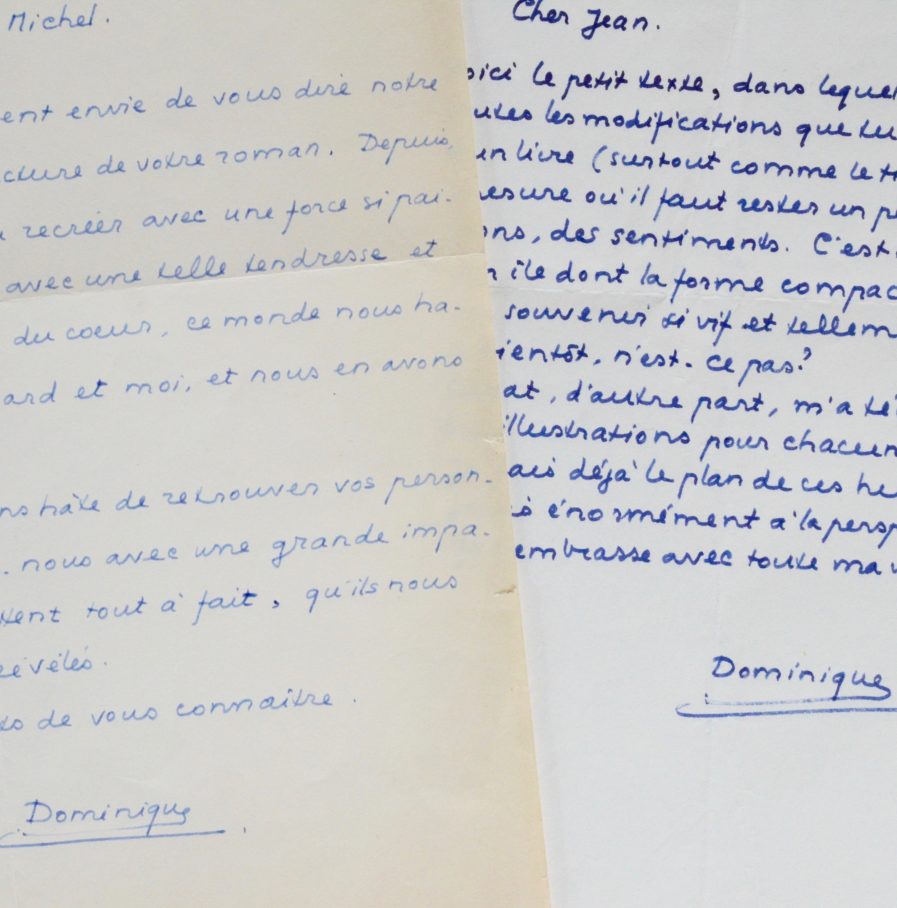 Michel.
ent envie de vous dire notre
cture de votre roman. Depuis,
recréer avec une force si pai-
avec une telle tendresse et
du coeur, ce monde nous ha-
ard et moi, et nous en avons
ns hâte de retrouver vos person-
. nous avec une grande impa-
tent tout à fait, qu'ils nous
révélés.
ts de vous connaître.
Dominique
Cher Jean.
oici le petit texte, dans lequel
utes les modifications que tu
un livre (surtout comme le ti
esure où il faut rester un p
ons, des sentiments. C'est
île dont la forme compac
souvenir si vif et tellem
ientôt, n'est-ce pas?
at, d'autre part, m'a té
illustrations pour chacun
ais déjà le plan de ces he
is énormément à la persp
embrasse avec toute ma
Dominique